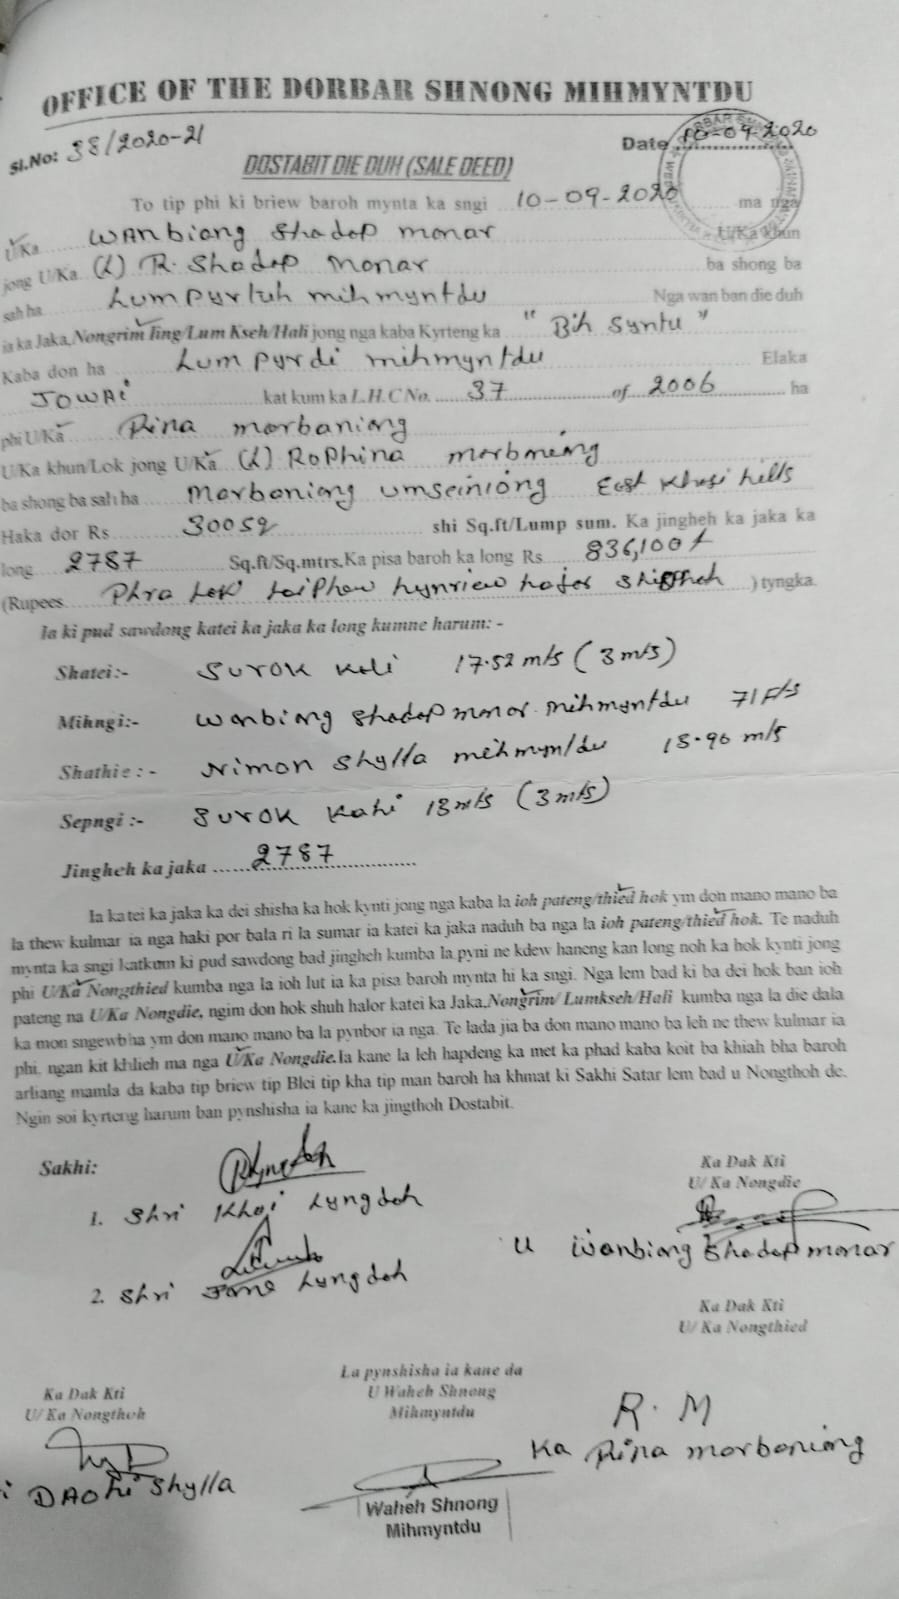 OFFICE OF THE DORBAR SHNONG MIHMYNTDU
Sl.No: 38/2020-21
Date 10-09-2020
DOSTABIT DIE DUH (SALE DEED)
To tip phi ki briew baroh mynta ka sngi 10-09-2020 ma nga
U/Ka Wanbiang Shadap monar U/Ka khun
jong U/Ka (L) R. Shadap monar ba shong ba
sah ha Lumpyrtuh mihmyntdu Nga wan ban die duh
ia ka Jaka, Nongrim Iing/Lum Kseh/Hali jong nga kaba Kyrteng ka "Bih Syntu"
Kaba don ha Lum pyrdi mihmyntdu Elaka
JOWAI kat kum ka L.H.C No. 37 of 2006 ha
phi U/Ka Rina marbaniang
U/Ka khun/Lok jong U/Ka (L) Rophina
ba shong ba sah ha Marbaniang umseiniong East Khasi hills
Haka dor Rs shi Sq.ft/Lump sum. Ka jingheh ka jaka ka
long 2787 Sq.ft/Sq.mtrs.Ka pisa baroh ka long Rs 836,100
(Rupees Phra Lak laiphew hynriew hajar shispah ) tyngka.
Ia ki pud sawdong katei ka jaka ka long kumne harum: -
Shatei:- Surok Kali 17.52 mts (3 mts)
Mihngi:- Wanbiang Shadap monar mihmyntdu 71 fts
Shathie : - Nimon Shylla mihmyntdu 18.90 mts
Sepngi :- Surok Kali 13 mts (3 mts)
Jingheh ka jaka 2787
Ia ka tei ka jaka ka dei shisha ka hok kynti jong nga kaba la ioh pateng/thied hok ym don mano mano ba
la thew kulmar ia nga haki por bala ri la sumar ia katei ka jaka naduh ba nga la ioh pateng/thied hok. Te naduh
mynta ka sngi katkum ki pud sawdong bad jingheh kumba la pyni ne kdew haneng kan long noh ka hok kynti jong
phi U/Ka Nongthied kumba nga la ioh lut ia ka pisa baroh mynta hi ka sngi. Nga lem bad ki ba dei hok ban ioh
pateng na U/Ka Nongdie, ngim don hok shuh halor katei ka Jaka,Nongrim/ Lumkseh/Hali kumba nga la die dala
ka mon sngewbha ym don mano mano ba la pynbor ia nga. Te lada jia ba don mano mano ba leh ne thew kulmar ia
phi, ngan kit khlieh ma nga U/Ka Nongdie.Ia kane la leh hapdeng ka met ka phad kaba koit ba khiah bha baroh
arliang mamla da kaba tip briew tip Blei tip kha tip man baroh ha khmat ki Sakhi Satar lem bad u Nongthoh de.
Ngin soi kyrteng harum ban pynshisha ia kane ka jingthoh Dostabit.
Sakhi:
Ka Dak Kti
U/ Ka Nongdie
1. Shri Khai Lyngdoh
U Wanbiang Shadap monar
2. Shri Lyngdoh
Ka Dak Kti
U/ Ka Nongthied
La pynshisha ia kane da
U Waheh Shnong
Mihmyntdu
Ka Dak Kti
U/ Ka Nongthoh
R. M
Ka Rina marbaniang
DAOhi Shylla
Waheh Shnong
Mihmyntdu